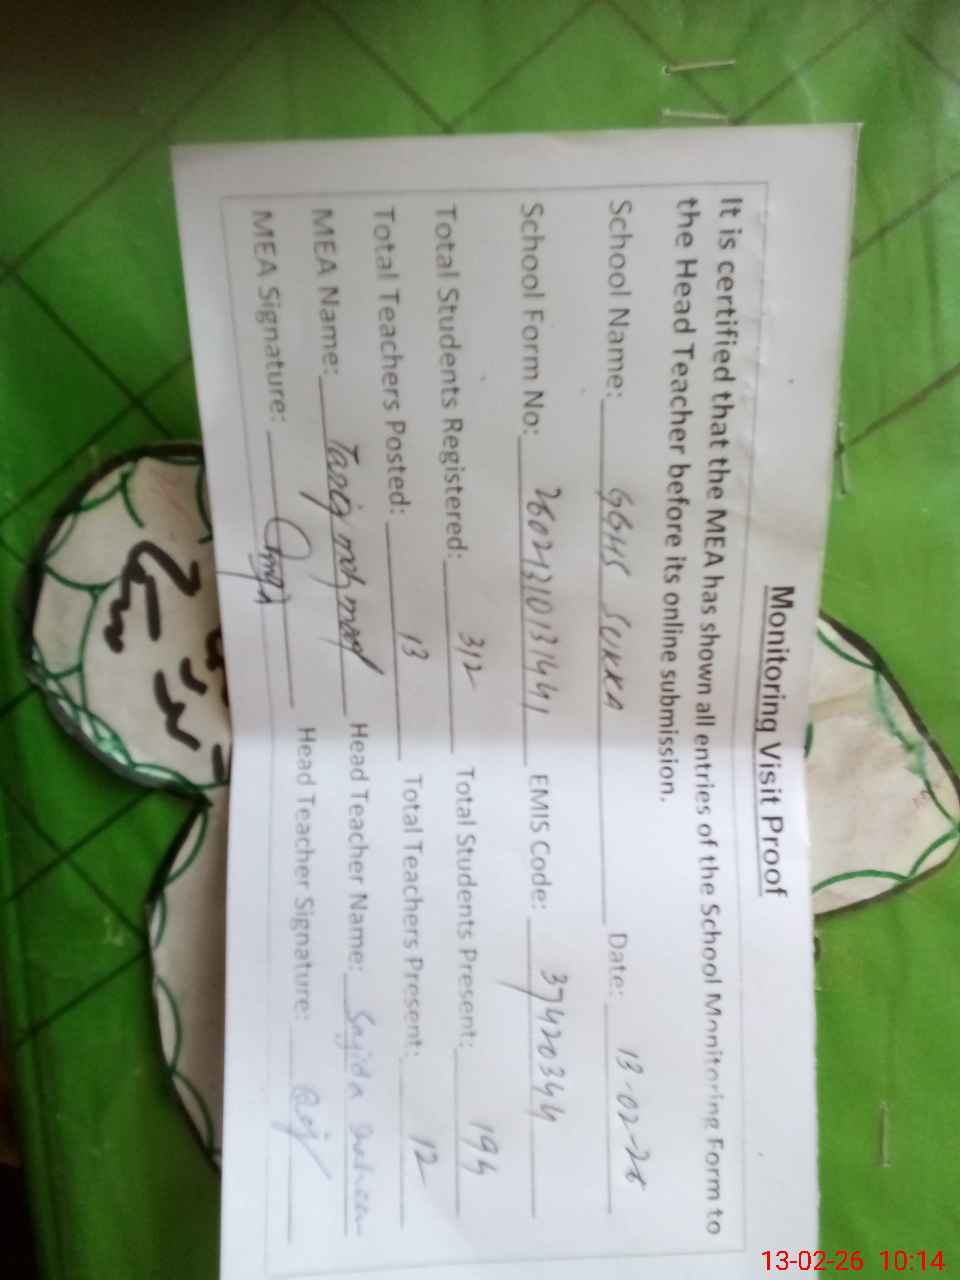 Monitoring Visit Proof
It is certified that the MEA has shown all entries of the School Monitoring Form to
the Head Teacher before its online submission.
School Name: GGHS SUKKA Date: 13-02-26
School Form No: EMIS Code: 37420344
Total Students Registered: 312 Total Students Present: 194
Total Teachers Posted: 13 Total Teachers Present: 12
MEA Name: Tariq mehmood Head Teacher Name: Sajida Shaheen
MEA Signature: Head Teacher Signature:
13-02-26 10:14